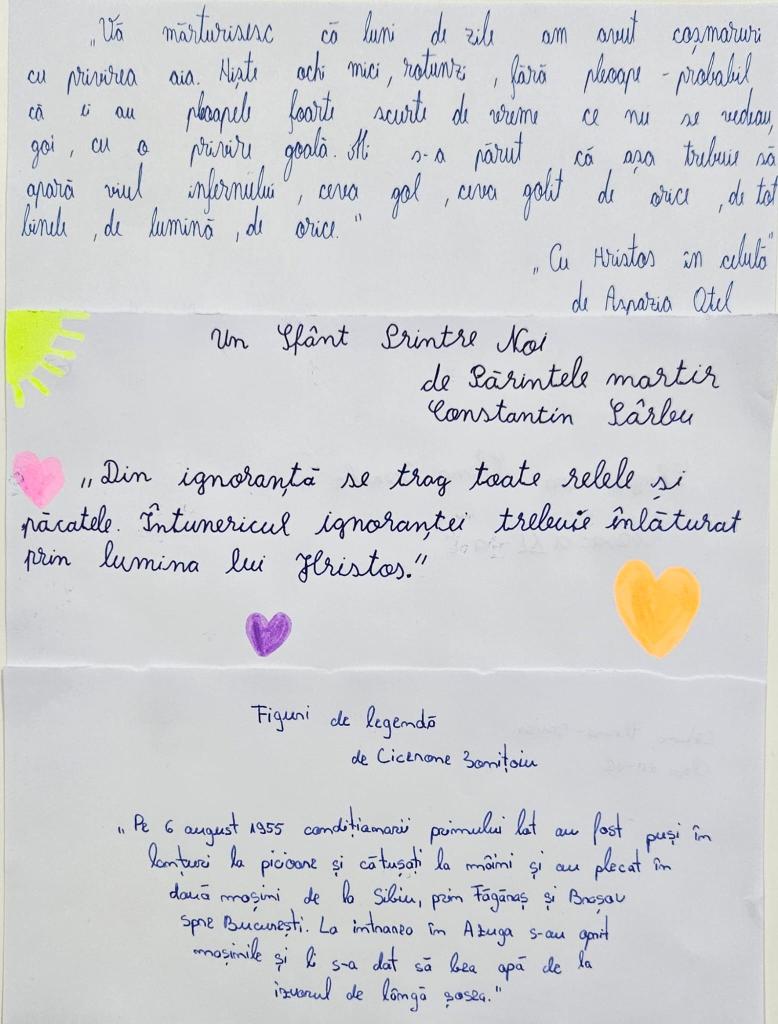 „Vă mărturisesc că luni de zile am avut coșmaruri
cu privirea aia. Niște ochi mici, rotunzi, fără pleoape - probabil
că ei au pleoapele foarte scurte de vreme ce nu se vedeau,
goi, cu o privire goală. Mi s-a părut că așa trebuie să
apară viul infernului, ceva gol, ceva golit de orice, de tot
binele, de lumină, de orice."
„Cu Hristos în celulă"
de Aspazia Oțel
Un Sfânt Printre Noi
de Părintele martir
Constantin Sârbu
„Din ignoranță se trag toate relele și
păcatele. Întunericul ignoranței trebuie înlăturat
prin lumina lui Hristos."
Figuri de legendă
de Cicerone Ionițoiu
„Pe 6 august 1955 condiționarii primului lot au fost puși în
lanțuri la picioare și cătușați la mâini și au plecat în
două mașini de la Sibiu, prin Făgăraș și Brașov
spre București. La intrarea în Azuga s-au oprit
mașinile și li s-a dat să bea apă de la
izvorul de lângă șosea."